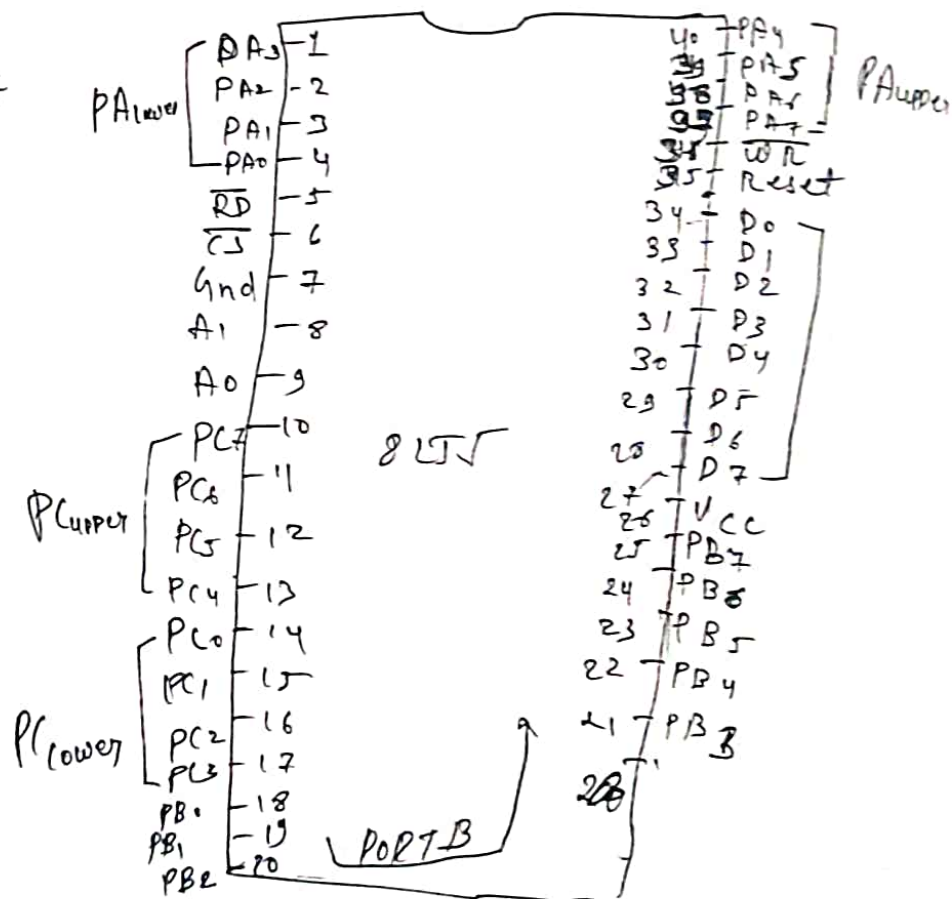 PAlower
PA3 1
PA2 2
PA1 3
PA0 4
RD 5
CS 6
Gnd 7
A1 8
A0 9
PCupper
PC7 10
PC6 11
PC5 12
PC4 13
PClower
PC0 14
PC1 15
PC2 16
PC3 17
PB0 18
PB1 19
PB2 20
8255
PORTB
40 PA4
39 PA5
38 PA6
37 PA7
PAupper
36 WR
35 Reset
34 D0
33 D1
32 D2
31 D3
30 D4
29 D5
28 D6
27 D7
26 VCC
25 PB7
24 PB6
23 PB5
22 PB4
21 PB3